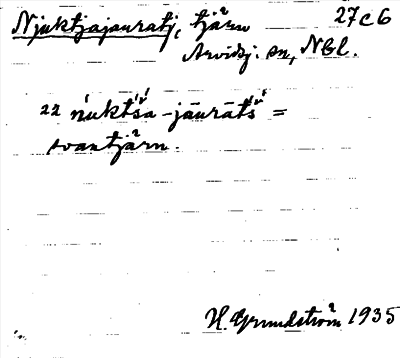 Njuktjajauratj, tjärn 27c6
Arvidsj. sn, Nbl.
22 ńuktśa-jāurātś =
svantjärn.
H. Grundström 1935